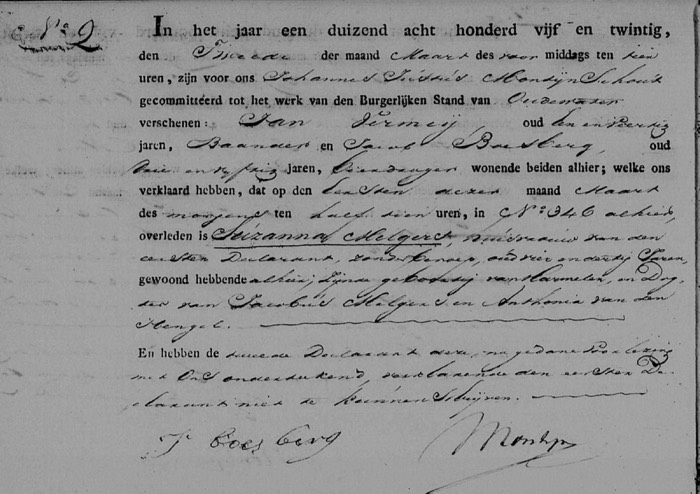 N.o 2
In het jaar een duizend acht honderd vijf en twintig,
den Tweede der maand Maart des voor middags ten tien
uren, zijn voor ons Johannes Justus Montijn Schout
gecommitteerd tot het werk van den Burgerlijken Stand van Oudewater
verschenen: Jan Vermeij, oud een en veertig
jaren, en Jacob Boesberg, oud
en jaren, wonende beiden alhier; welke ons
verklaard hebben, dat op den eersten dezer maand Maart
des morgens ten half tien uren, in N.o 346 alhier,
overleden is Suzanna Helgers, huisvrouw van den
eersten Declarant, zonder beroep, oud vier en dertig Jaren,
gewoond hebbende alhier, zijnde geboortig van Harmelen, en Dog-
ter van Jacobus Helgers en Anthonia van den
Hengel.
En hebben de tweede Declarant deze, na gedane voorlezing
met Ons onderteekend, verklarende den eersten De-
clarant niet te kunnen Schrijven.
J Boesberg Montijn